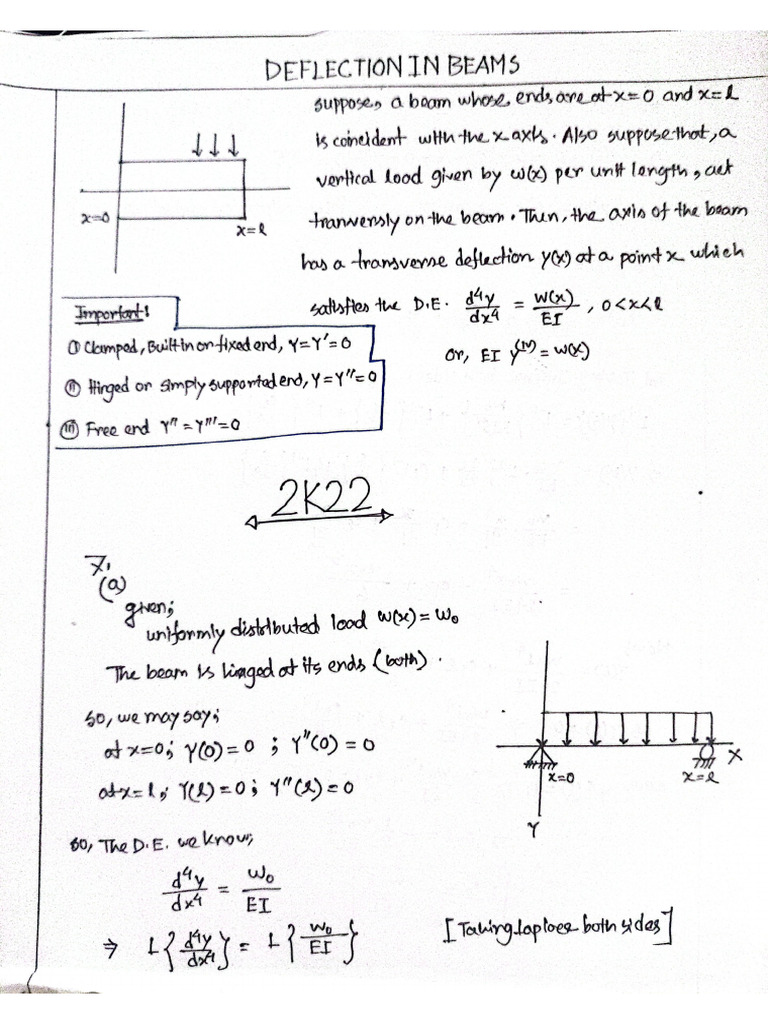 DEFLECTION IN BEAMS
suppose, a beam whose, ends are at x=0 and x=l
is coincident with the x axis. Also suppose that, a
vertical load given by w(x) per unit length, act
tranversly on the beam. Then, the axis of the beam
has a transverse deflection y(x) at a point x which
satisfies the D.E. d⁴y/dx⁴ = W(x)/EI , 0<x<l
or, EI y^(IV) = w(x)
x=0
x=l
Important:
(i) Clamped, Built in or fixed end, Y=Y'=0
(ii) Hinged or simply supported end, Y=Y''=0
(iii) Free end Y''=Y'''=0
2K22
7.
(a)
given;
uniformly distributed load w(x)=W₀
The beam is hinged at its ends (both).
so, we may say;
at x=0; Y(0)=0 ; Y''(0)=0
at x=l; Y(l)=0; Y''(l)=0
x=0
x=l
X
Y
so, The D.E. we know;
d⁴y/dx⁴ = W₀/EI
⇒ L{d⁴y/dx⁴} = L{W₀/EI} [Taking laplace both sides]